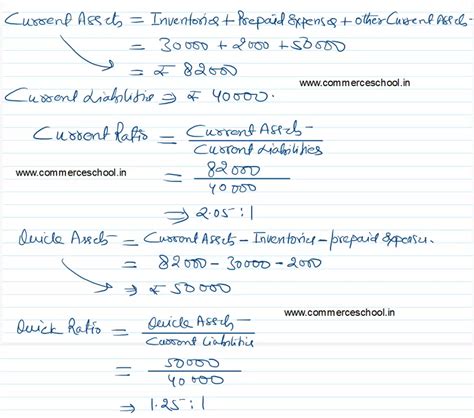 Current Assets = Inventories + Prepaid Expenses + other Current Assets
= 30000 + 2000 + 50000
= ₹ 82000
www.commerceschool.in
Current Liabilities ⇒ ₹ 40000.
Current Ratio = Current Assets
Current Liabilities
www.commerceschool.in
= 82000
40000
⇒ 2.05 : 1
Quick Assets = Current Assets - Inventories - prepaid Expenses.
= 82000 - 30000 - 2000
⇒ ₹ 50000
www.commerceschool.in
Quick Ratio = Quick Assets
Current Liabilities
= 50000
40000
⇒ 1.25 : 1